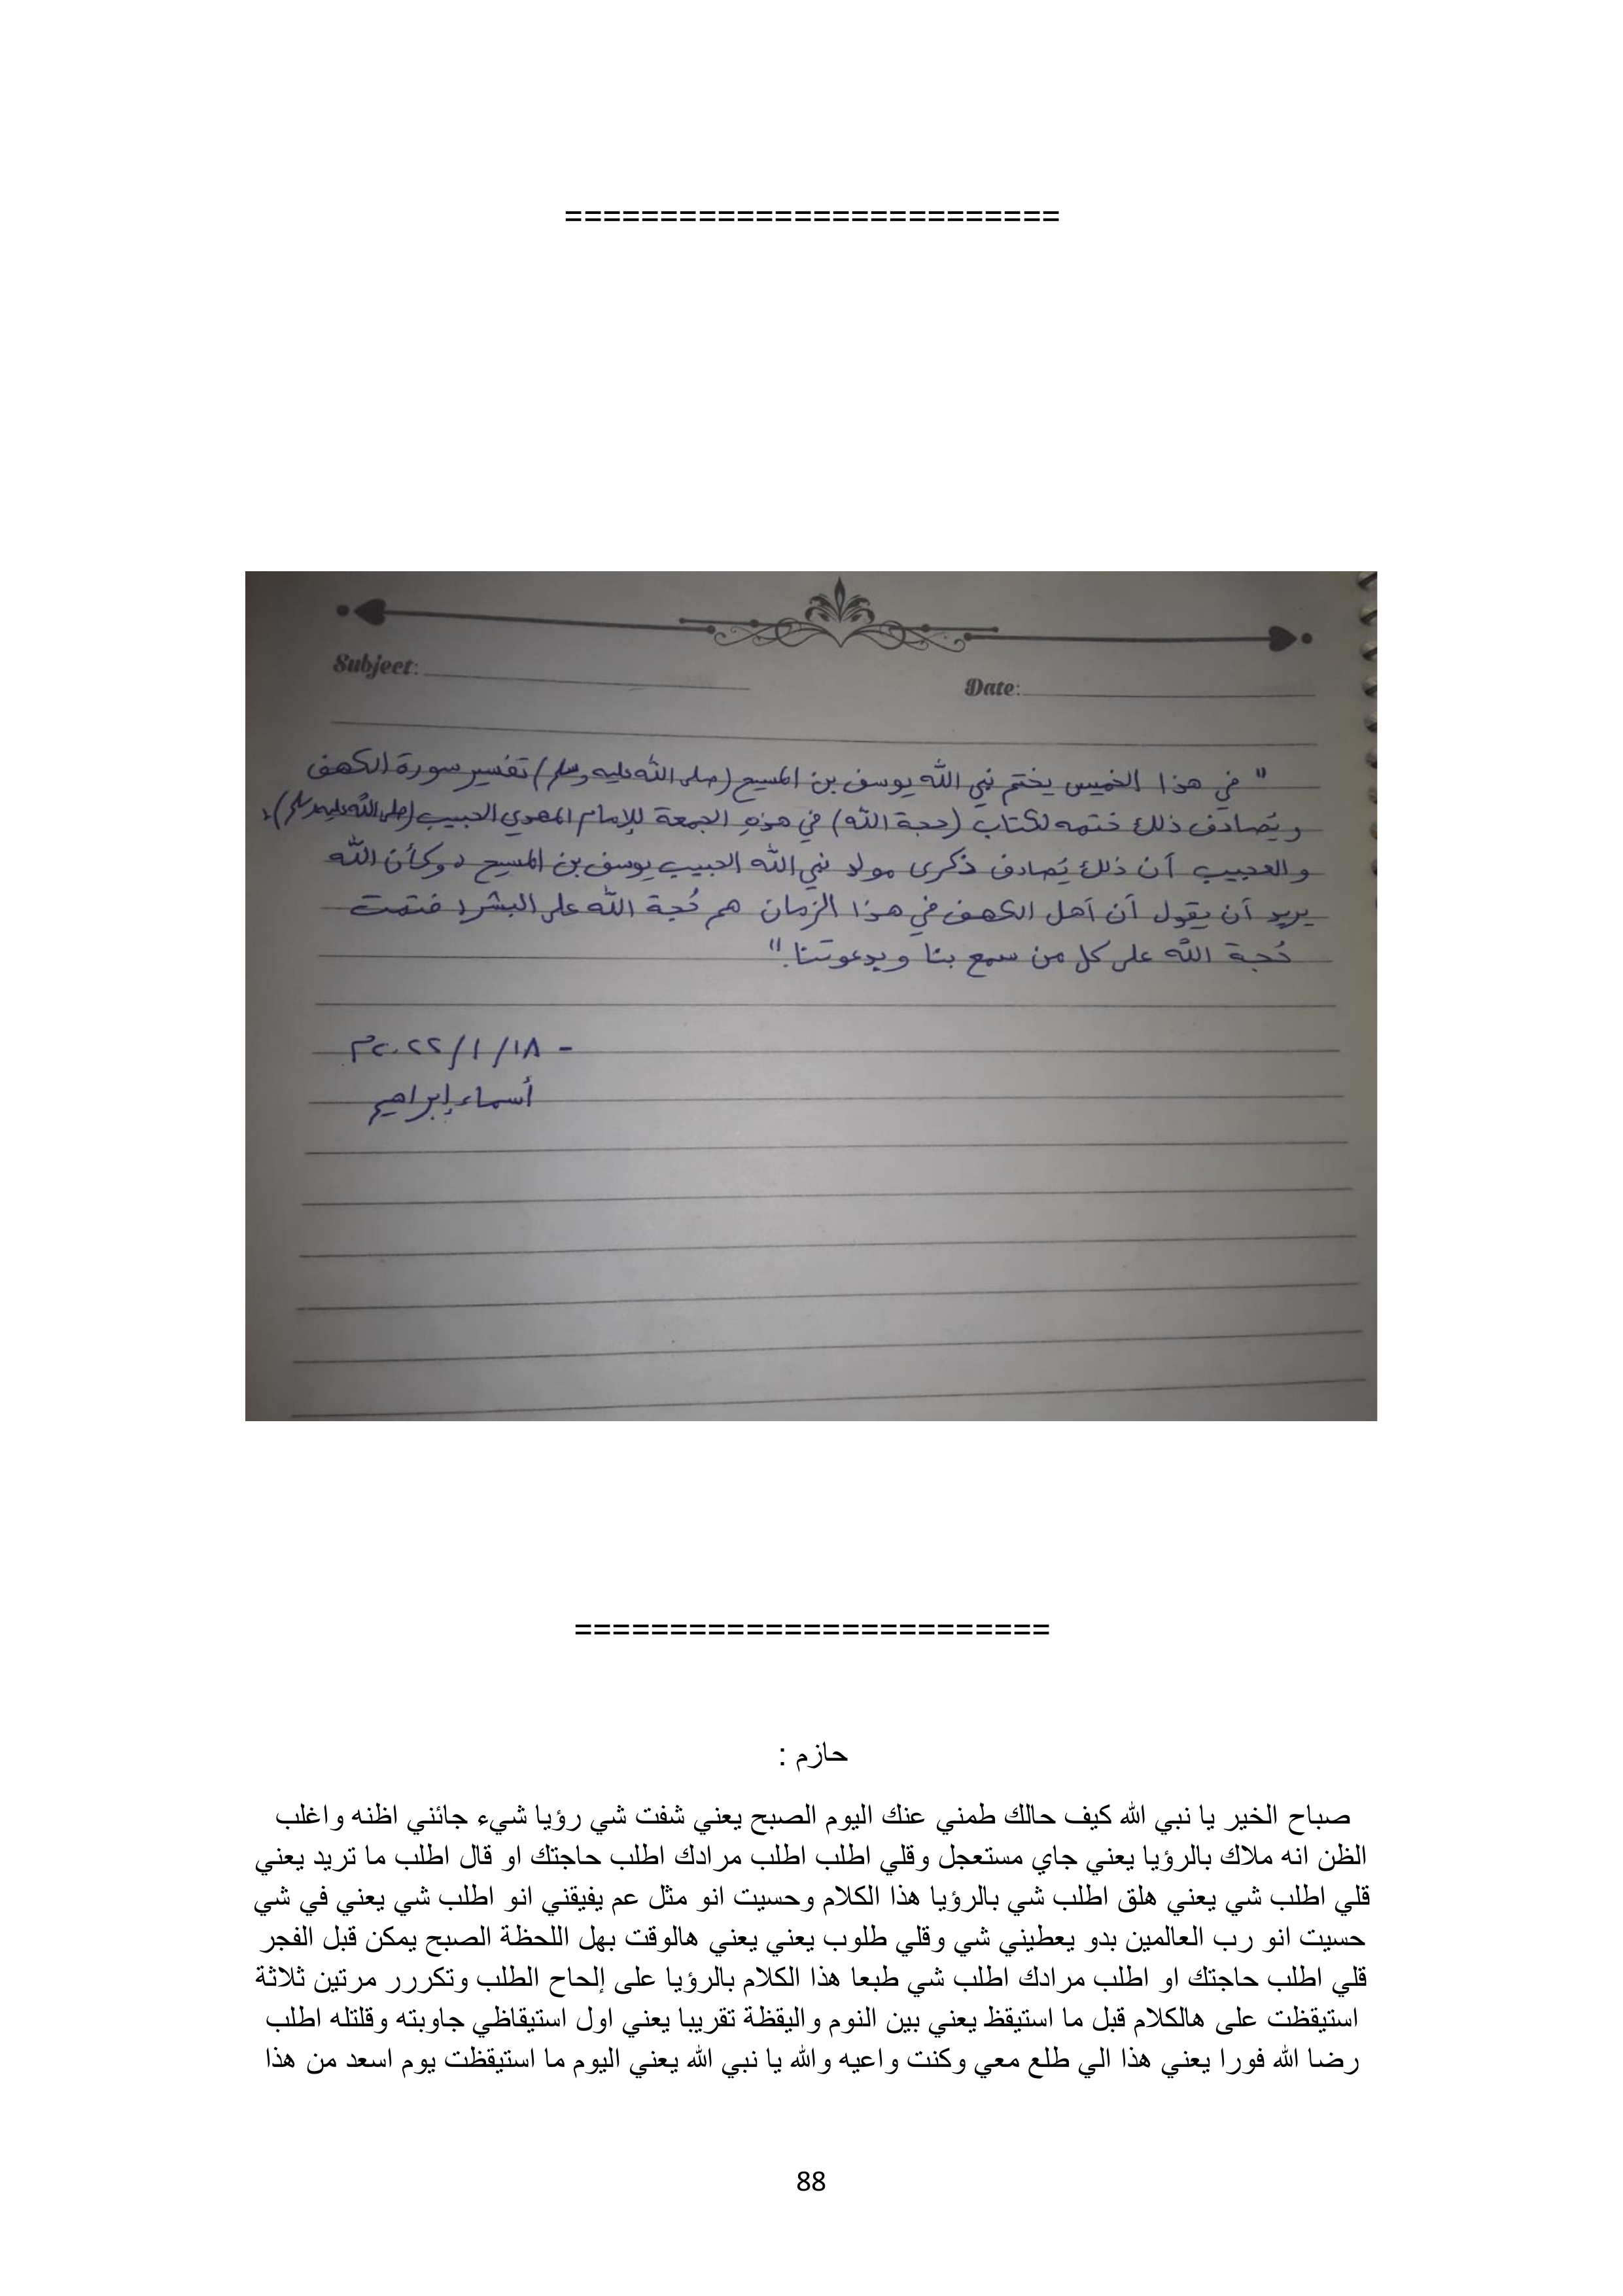 ==========================
Subject:
Date:
" في هذا الخميس يختم نبي الله يوسف بن المسيح (صلى الله عليه وسلم) تفسير سورة الكهف
ويُصادف ذلك ختمه لكتاب (حجة الله) في هذهِ الجمعة للإمام المهدي الحبيب (صلى الله عليه وسلم)،
والعجيب أن ذلك يُصادف ذكرى مولد نبي الله الحبيب يوسف بن المسيح، وكأن الله
يريد أن يقول أن أهل الكهف في هذا الزمان هم حُجة الله على البشر، فتمت
حُجة الله على كل من سمع بنا وبدعوتنا."
- ١٨/ ١ /٢٠٢٢م
أسماء إبراهيم
=========================
حازم :
صباح الخير يا نبي الله كيف حالك طمني عنك اليوم الصبح يعني شفت شي رؤيا شيء جائني اظنه واغلب
الظن انه ملاك بالرؤيا يعني جاي مستعجل وقلي اطلب اطلب مرادك اطلب حاجتك او قال اطلب ما تريد يعني
قلي اطلب شي يعني هلق اطلب شي بالرؤيا هذا الكلام وحسيت انو مثل عم يفيقني انو اطلب شي يعني في شي
حسيت انو رب العالمين بدو يعطيني شي وقلي طلوب يعني يعني هالوقت بهل اللحظة الصبح يمكن قبل الفجر
قلي اطلب حاجتك او اطلب مرادك اطلب شي طبعا هذا الكلام بالرؤيا على إلحاح الطلب وتكررر مرتين ثلاثة
استيقظت على هالكلام قبل ما استيقظ يعني بين النوم واليقظة تقريبا يعني اول استيقاظي جاوبته وقلتله اطلب
رضا الله فورا يعني هذا الي طلع معي وكنت واعيه والله يا نبي الله يعني اليوم ما استيقظت يوم اسعد من هذا
88